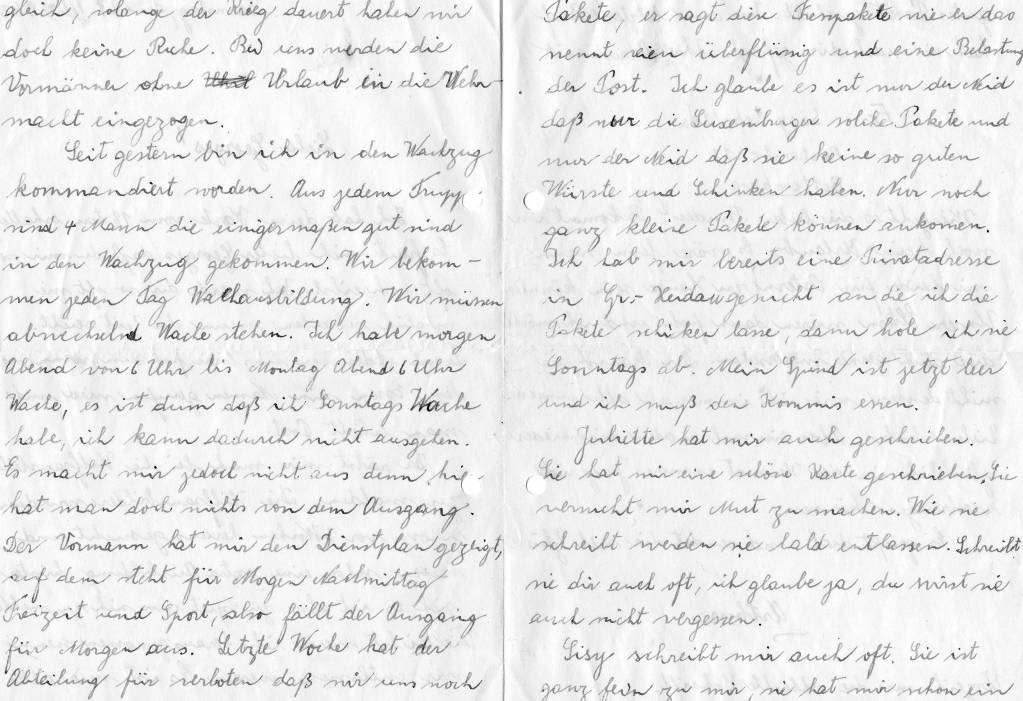 gleich, solange der Krieg dauert haben wir
doch keine Ruhe. Bei uns werden die
Vormänner ohne Urlaub in die Wehr-
macht eingezogen.
Seit gestern bin ich in den Wachzug
kommandiert worden. Aus jedem Trupp
sind 4 Mann die einigermaßen gut sind
in den Wachzug gekommen. Wir bekom-
men jeden Tag Wachausbildung. Wir müssen
abwechselnd Wache stehen. Ich habe morgen
Abend von 6 Uhr bis Montag Abend 6 Uhr
Wache, es ist dum daß ich Sonntags Wache
habe, ich kann dadurch nicht ausgehen.
Es macht mir jedoch nicht aus denn hie
hat man doch nichts von dem Ausgang.
Der Vormann hat mir den Dienstplan gezeigt,
auf dem steht für Morgen Nachmittag
Freizeit und Sport, also fällt der Ausgang
für Morgen aus. Letzte Woche hat der
Abteilung für verboten daß wir uns noch
Pakete, er sagt diese Fresspakete wie er das
nennt überflüsig und eine Belastung
der Post. Ich glaube es ist nur der Neid
daß nur die Luxemburger solche Pakete und
nur der Neid daß sie keine so guten
Würste und Schinken haben. Nur noch
ganz kleine Pakete können ankomen.
Ich hab mir bereits eine Privatadresse
in Gr.- gesucht an die ich die
Pakete schiken lasse, dann hole ich sie
Sonntags ab. Mein Spind ist jetzt leer
und ich muß den Kommis essen.
Juliette hat mir auch geschrieben.
Sie hat mir eine schöne Karte geschrieben. Sie
versucht mir Mut zu machen. Wie sie
schreibt werden sie bald entlassen. Schreibt
sie dir auch oft, ich glaube ja, du wirst sie
auch nicht vergessen.
Sisy schreibt mir auch oft. Sie ist
ganz fein zu mir, sie hat mir schon ein